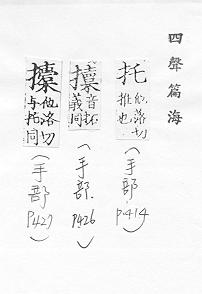 四聲篇海
托
他落切
推也
(手部 P.414)
音托
義同
(手部 P426)
他洛切
与托同
(手部 P427)